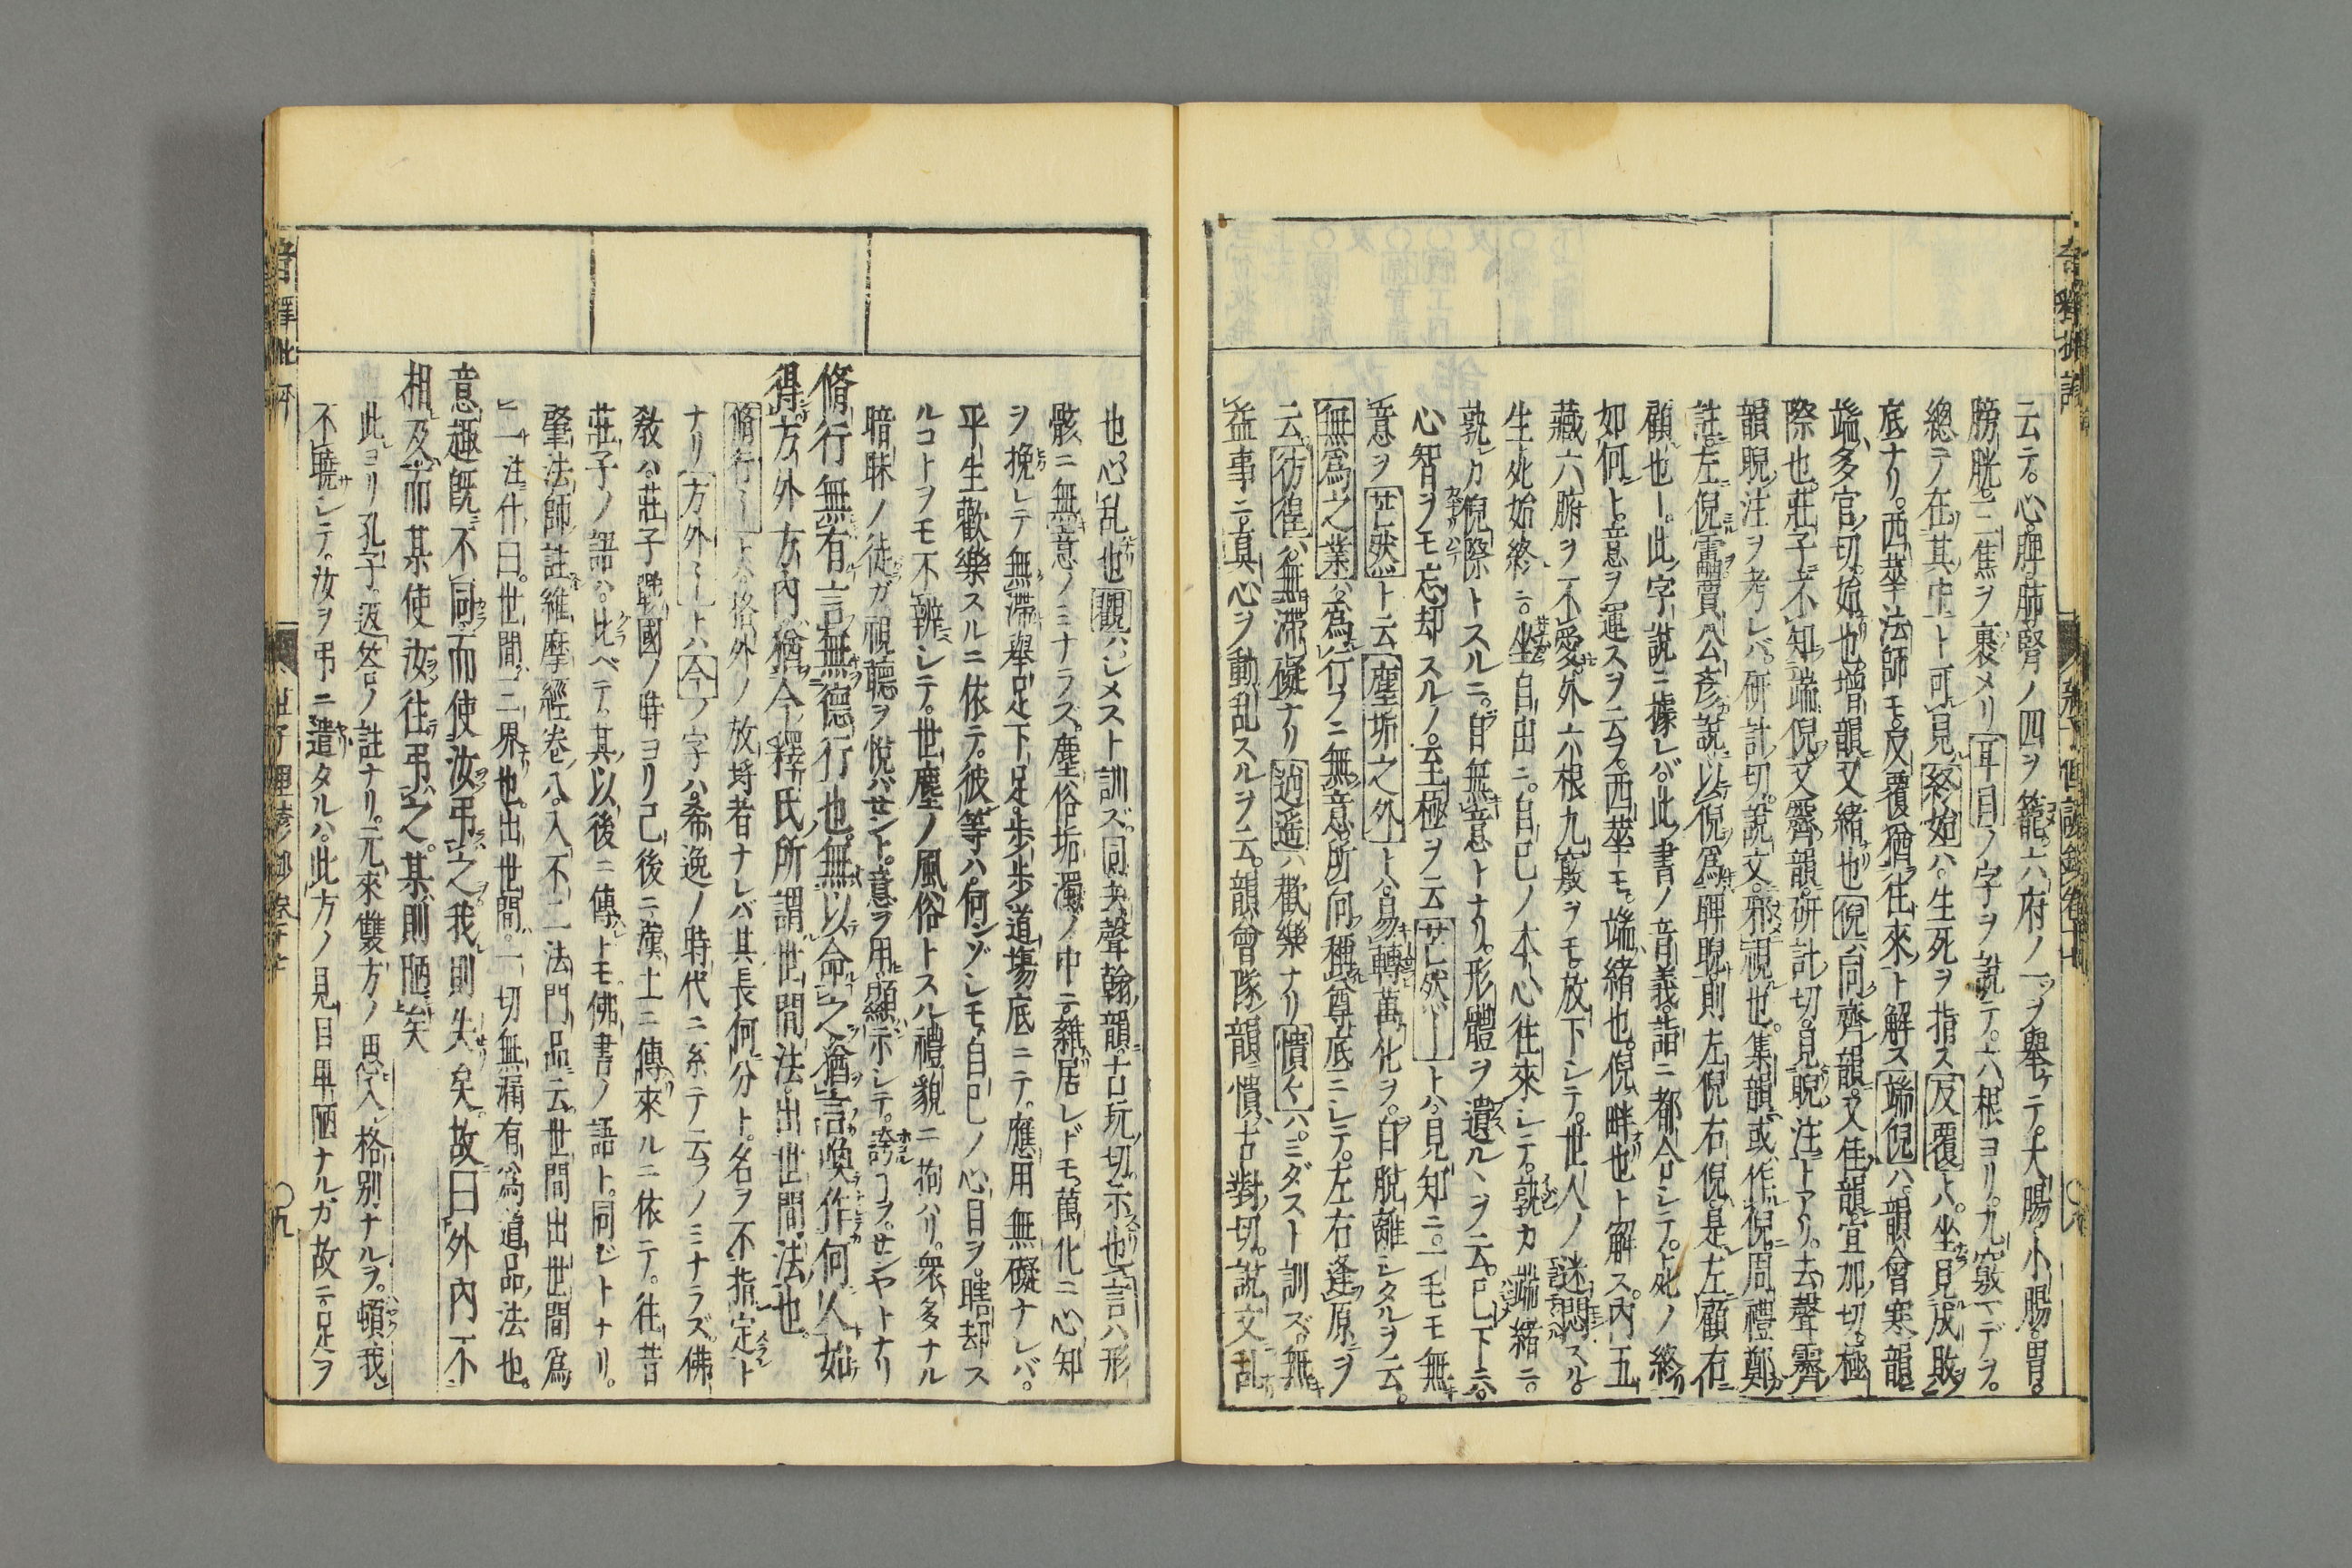 云テ。心脾肺腎ノ四ヲ籠。六府ノ一ヲ擧ケテ。大腸小腸。胃。
膀胱。三焦ヲ裹メリ耳目ノ字ヲ說テ。六根ヨリ。九竅マデヲ。
總テ在其中ト可見終始ハ。生死ヲ指ス反覆トハ。坐見成敗
底ナリ。西華法師モ。反覆猶往來ト解ス端倪ハ。韻會寒韻
端多官切。始也。增韻又緒也倪ハ。同齊韻。又佳韻。宜加切。極
際也。莊子不知端倪。又霽韻。研計切。見睨注トアリ。去聲霽
韻睨注ヲ考レバ。研計切。說文。邪視也。集韻。或作倪。周禮鄭
註。左倪靁賈公彥說。以倪爲睥睨則左倪右倪。是左顧右
顧也ー。此字說ニ據レバ。此書ノ音義。詣ニ都合シテ。
如何ト。意ヲ運スヲ云フ。西華モ。端緒也。倪畔也ト解ス。內五
藏六腑ヲ不愛。外六根九竅ヲモ。放下シテ。世人ノ謎悶スル。
生死始終ニ。坐自出ニ。自己ノ本心往來シテ。孰カ端緒ニ。
孰カ倪際トスルニ。自無意トナリ。形體ヲ遺ルヽヲ云。已下ニ。
心智ヲモ忘却スルノ。至極ヲ云芒然ートハ。見知ニ。一毛モ無
意ヲ芒然ト云塵垢之外トハ。易轉萬化ヲ。自脫離シタルヲ云。
無爲之業ハ。爲行フニ無意。所向種尊底ニシテ。左右逢原ヲ
云。彷徨ハ。無滯礙ナリ逍遙ハ歡樂ナリ憒々ハ。ミダスト訓ズ。無
益事ニ。真心ヲ動乱スルヲ云。韻會隊韻憒古對切。說文。乱
也。心乱也觀ハ。シメスト訓ズ。同去聲翰韻。古玩切。示也言ハ形
骸ニ無意ノミナラズ。塵俗垢濁ノ中ニ。雜居レドモ。萬化ニ心知
ヲ挽レテ無滯。擧足下足。歩歩道塲底ニテ。應用無礙ナレバ。
平生歡樂スルニ依テ。彼等ハ。何ンゾシモ。自己ノ心目ヲ。瞎却ス
ルコトヲモ不辨シテ。世塵ノ風俗トスル禮貌ニ拘ハリ。衆多ナル
暗昧ノ徒ガ視聽ヲ悅バサント。意ヲ用顯示シテ。誇ヿヲセンヤトナリ
脩行無有。言無德行也。無以命之。猶言喚作何人始
得。方外方內。猶今釋氏所謂世間法。出世間法也。
脩行ートハ格外ノ放埓者ナレバ其長何分ト。名ヲ不指定ト
ナリ方外ートハ今ノ字ハ。希逸ノ時代ニ系テ云フノミナラズ。佛
敎ハ。莊子戰國ノ時ヨリ已後ニ。漢土ニ傳來ルニ依テ。往昔
莊子ノ語ハ。比ベテ。其以後ニ傳トモ。佛書ノ語ト。同ジトナリ。
肇法師註維摩經卷八。入不二法門品云。世間出世間爲
二。注什曰。世間。三界也。出世間。一切無漏有爲道品法也。
意趣旣不同。而使汝弔之。我則失矣。故曰外內不
相及。而某使汝往弔之。某則陋矣
此ヨリ孔子。返答ノ註ナリ。元來雙方ノ思入。格別ナルヲ。頓我
不曉シテ。汝ヲ弔ニ遣タルハ。此方ノ見目卑陋ナルガ故ニ。足ヲ
○九